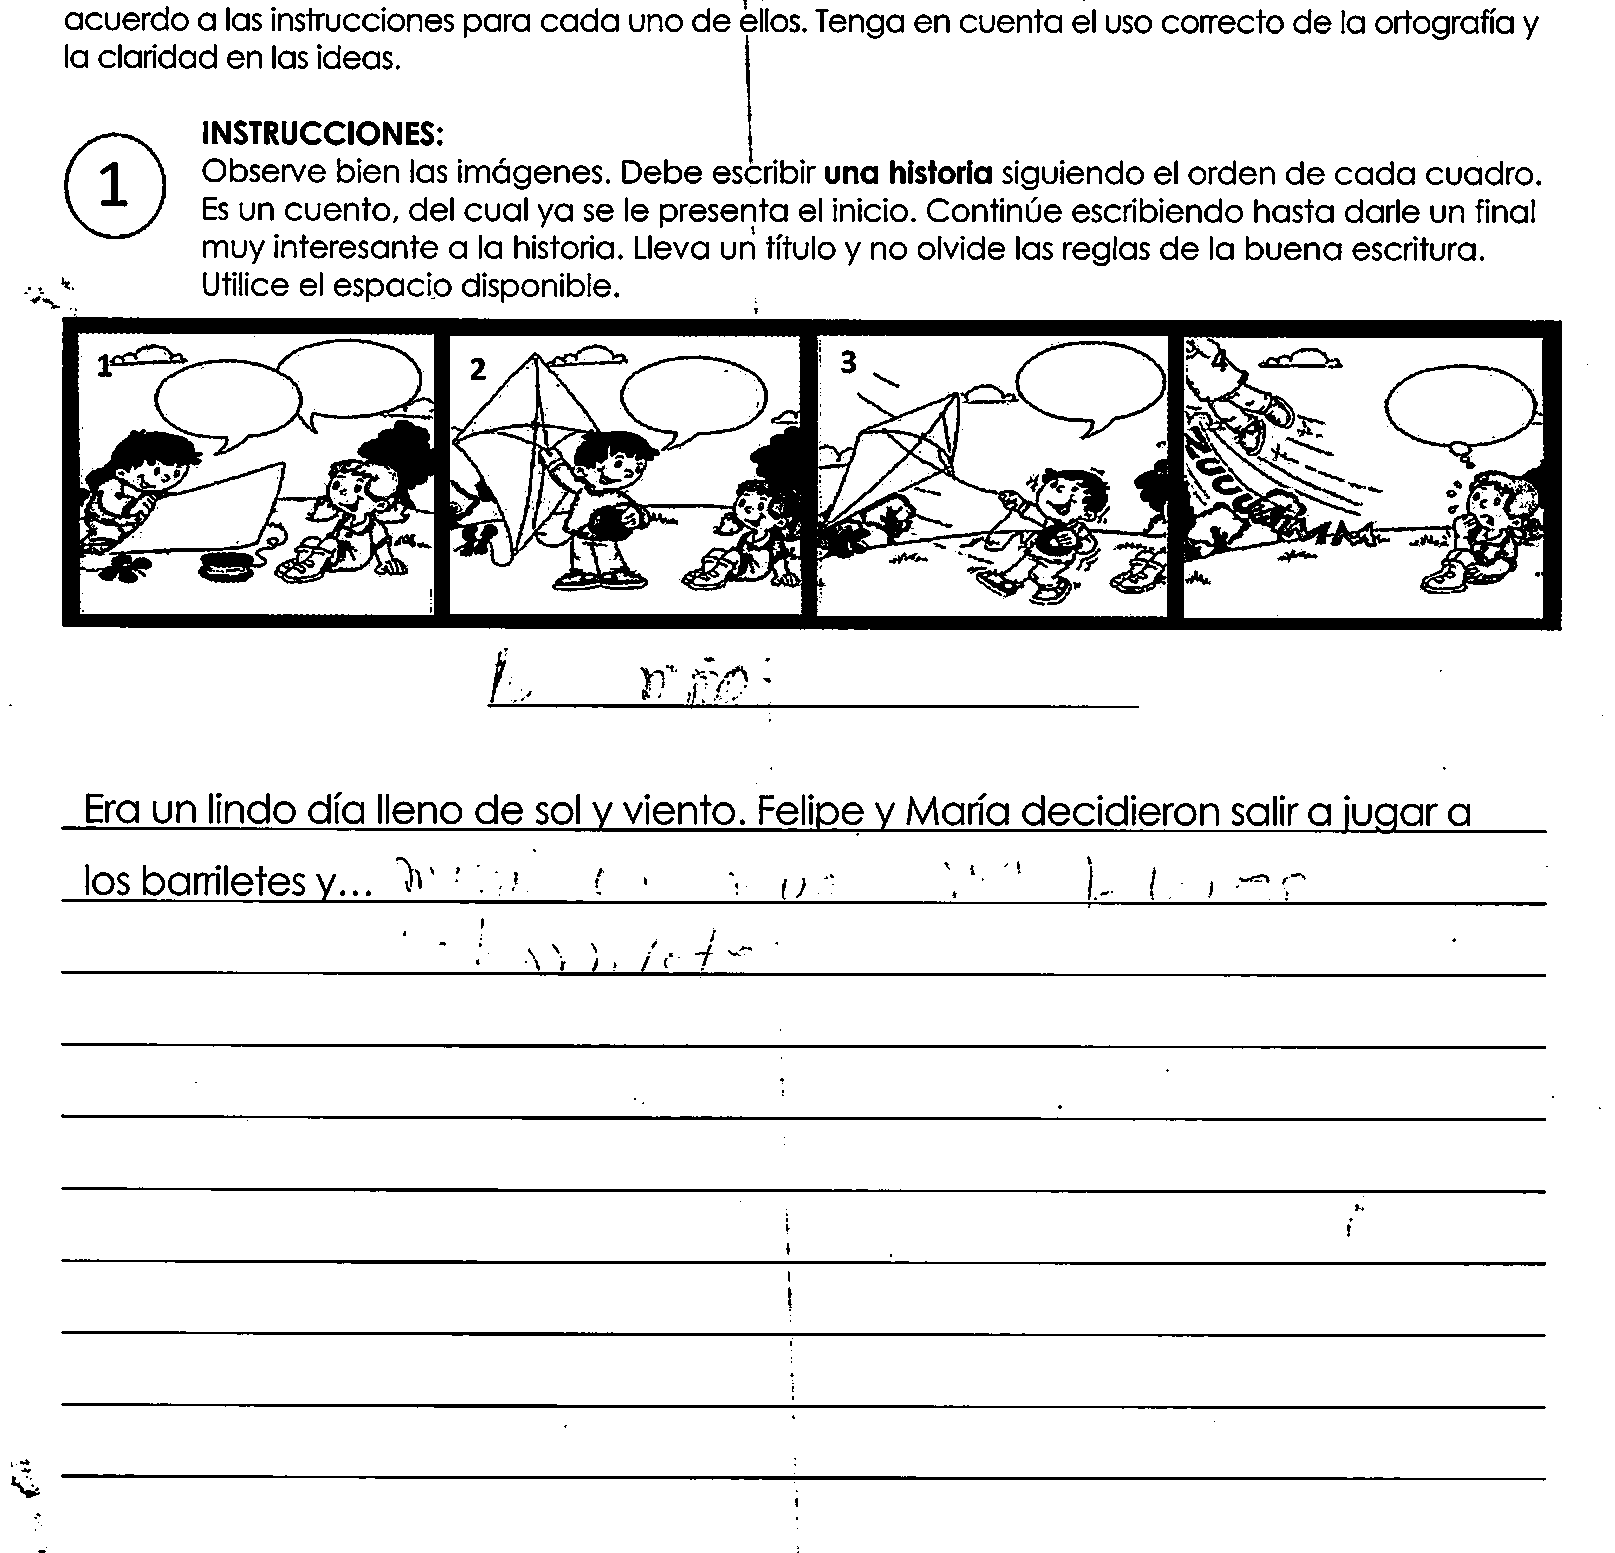 acuerdo a las instrucciones para cada uno de ellos. Tenga en cuenta el uso correcto de la ortografía y
la claridad en las ideas.
1
INSTRUCCIONES:
Observe bien las imágenes. Debe escribir una historia siguiendo el orden de cada cuadro.
Es un cuento, del cual ya se le presenta el inicio. Continúe escribiendo hasta darle un final
muy interesante a la historia. Lleva un título y no olvide las reglas de la buena escritura.
Utilice el espacio disponible.
1 2 3 4
Era un lindo día lleno de sol y viento. Felipe y María decidieron salir a jugar a
los barriletes y...